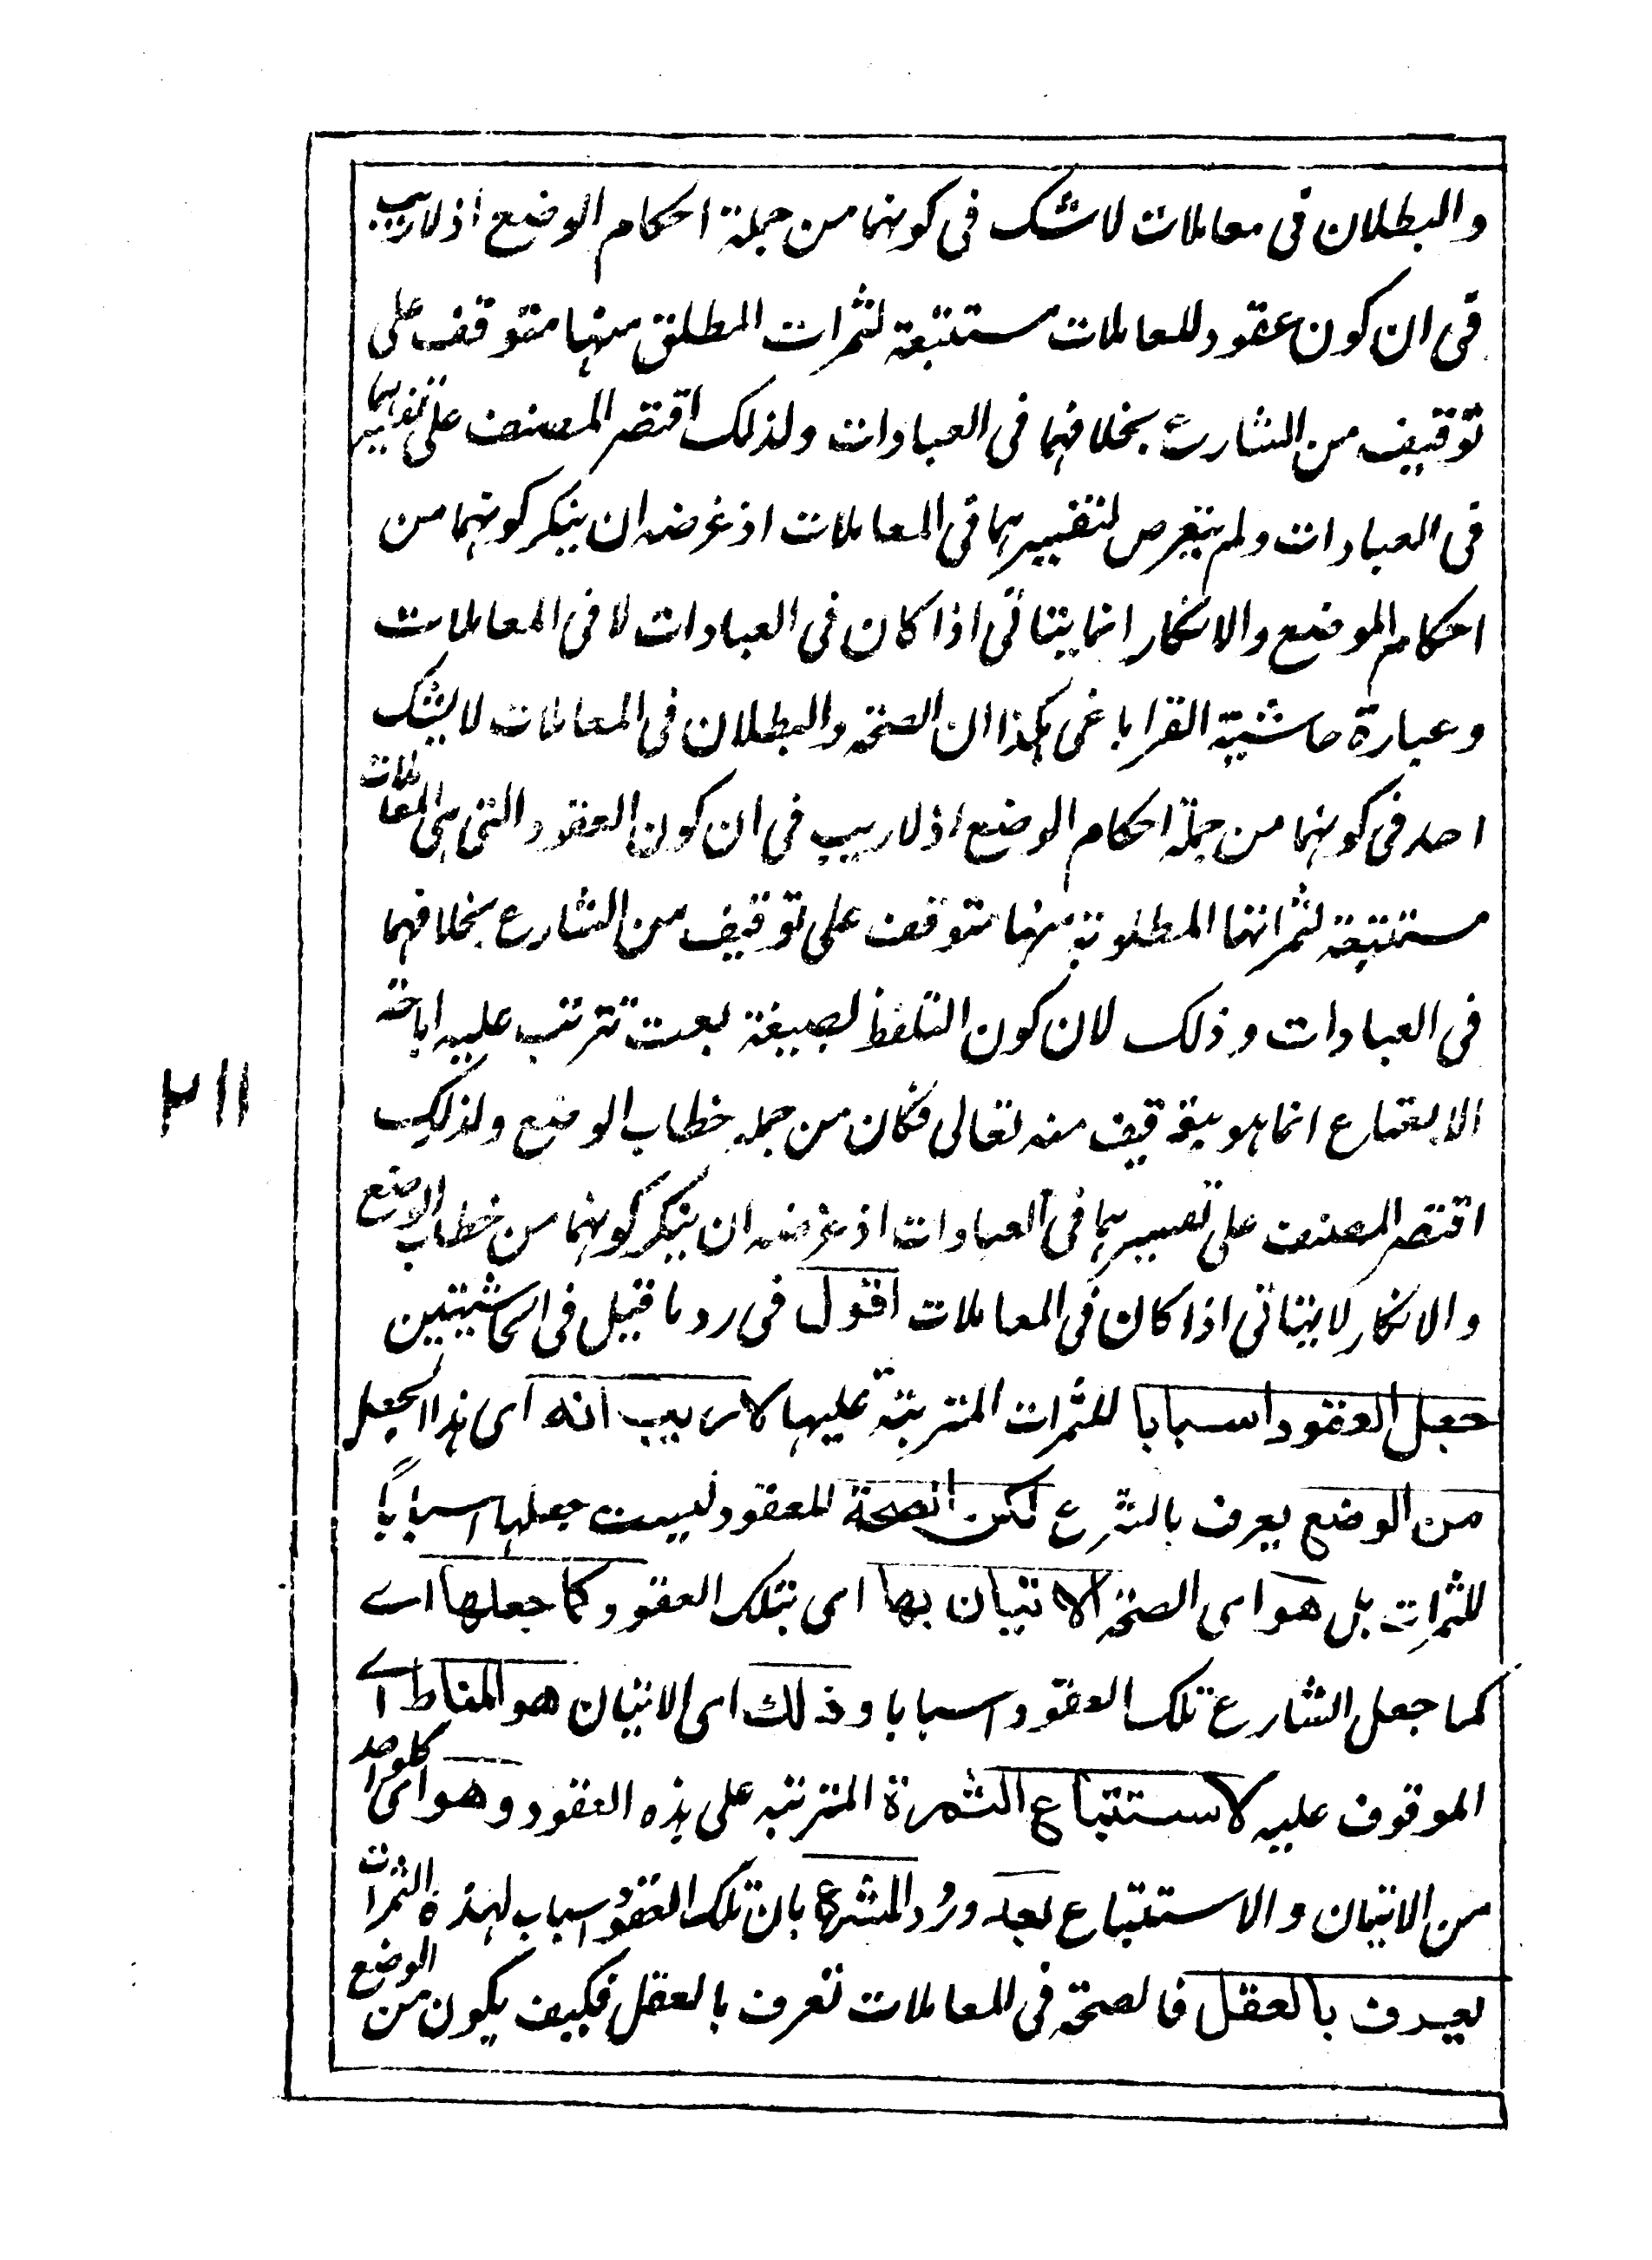 والبطلان فى معاملات لاشك فى كونهما من جملة احكام الوضع اذ لاريب
فى ان كون عقود للمعاملات مستتبعة لثمرات المطلق منها متوقف على
توقيف من الشارع بخلافهما فى العبادات ولذلك اقتصر المصنف على تفسيرهما
فى العبادات ولم يتعرض لتفسيرهما فى المعاملات اذ غرضه ان ينكر كونهما من
احكام الموضع والانكار انما يتاتى اذا كان فى العبادات لا فى المعاملات
وعبارة حاشية القراباغى هكذا ان الصحة والبطلان فى المعاملات لا يشك
احد فى كونهما من جملة احكام الوضع اذ لاريب فى ان كون العقود التى هى المعاملات
مستتبعة لثمراتها المطلوبة منها متوقف على توقيف من الشارع بخلافهما
فى العبادات وذلك لان كون التلفظ بصيغة بعت تترتب عليه اباحة
الانتفاع انما هو بتوقيف منه تعالى فكان من جملة خطاب الوضع ولذلك
اقتصر المصنف على تفسيرهما فى العبادات اذ غرضه ان ينكر كونهما من خطاب الوضع
والانكار لا يتاتى اذا كان فى المعاملات اقول فى رد ما قيل فى الحاشيتين
جعل العقود اسبابا للثمرات المترتبة عليها لاريب انه اى هذا الجعل
من الوضع يعرف بالشرع لكن الصحة للعقود ليست جعلها اسبابًا
للثمرات بل هو اى الصحة الاتيان بها اى بتلك العقود كما جعلها اے
كما جعل الشارع تلك العقود اسبابا وذلك اى الاتيان هو المناط اے
الموقوف عليه لاستتباع الثمرة المترتبه على هذه العقود وهو اى كلواحد
من الاتيان والاستتباع بعد ورُد الشرع بان تلك العقود اسباب لهذه الثمرات
يعرف بالعقل فالصحة فى المعاملات تعرف بالعقل فكيف يكون من الوضع
٢١١